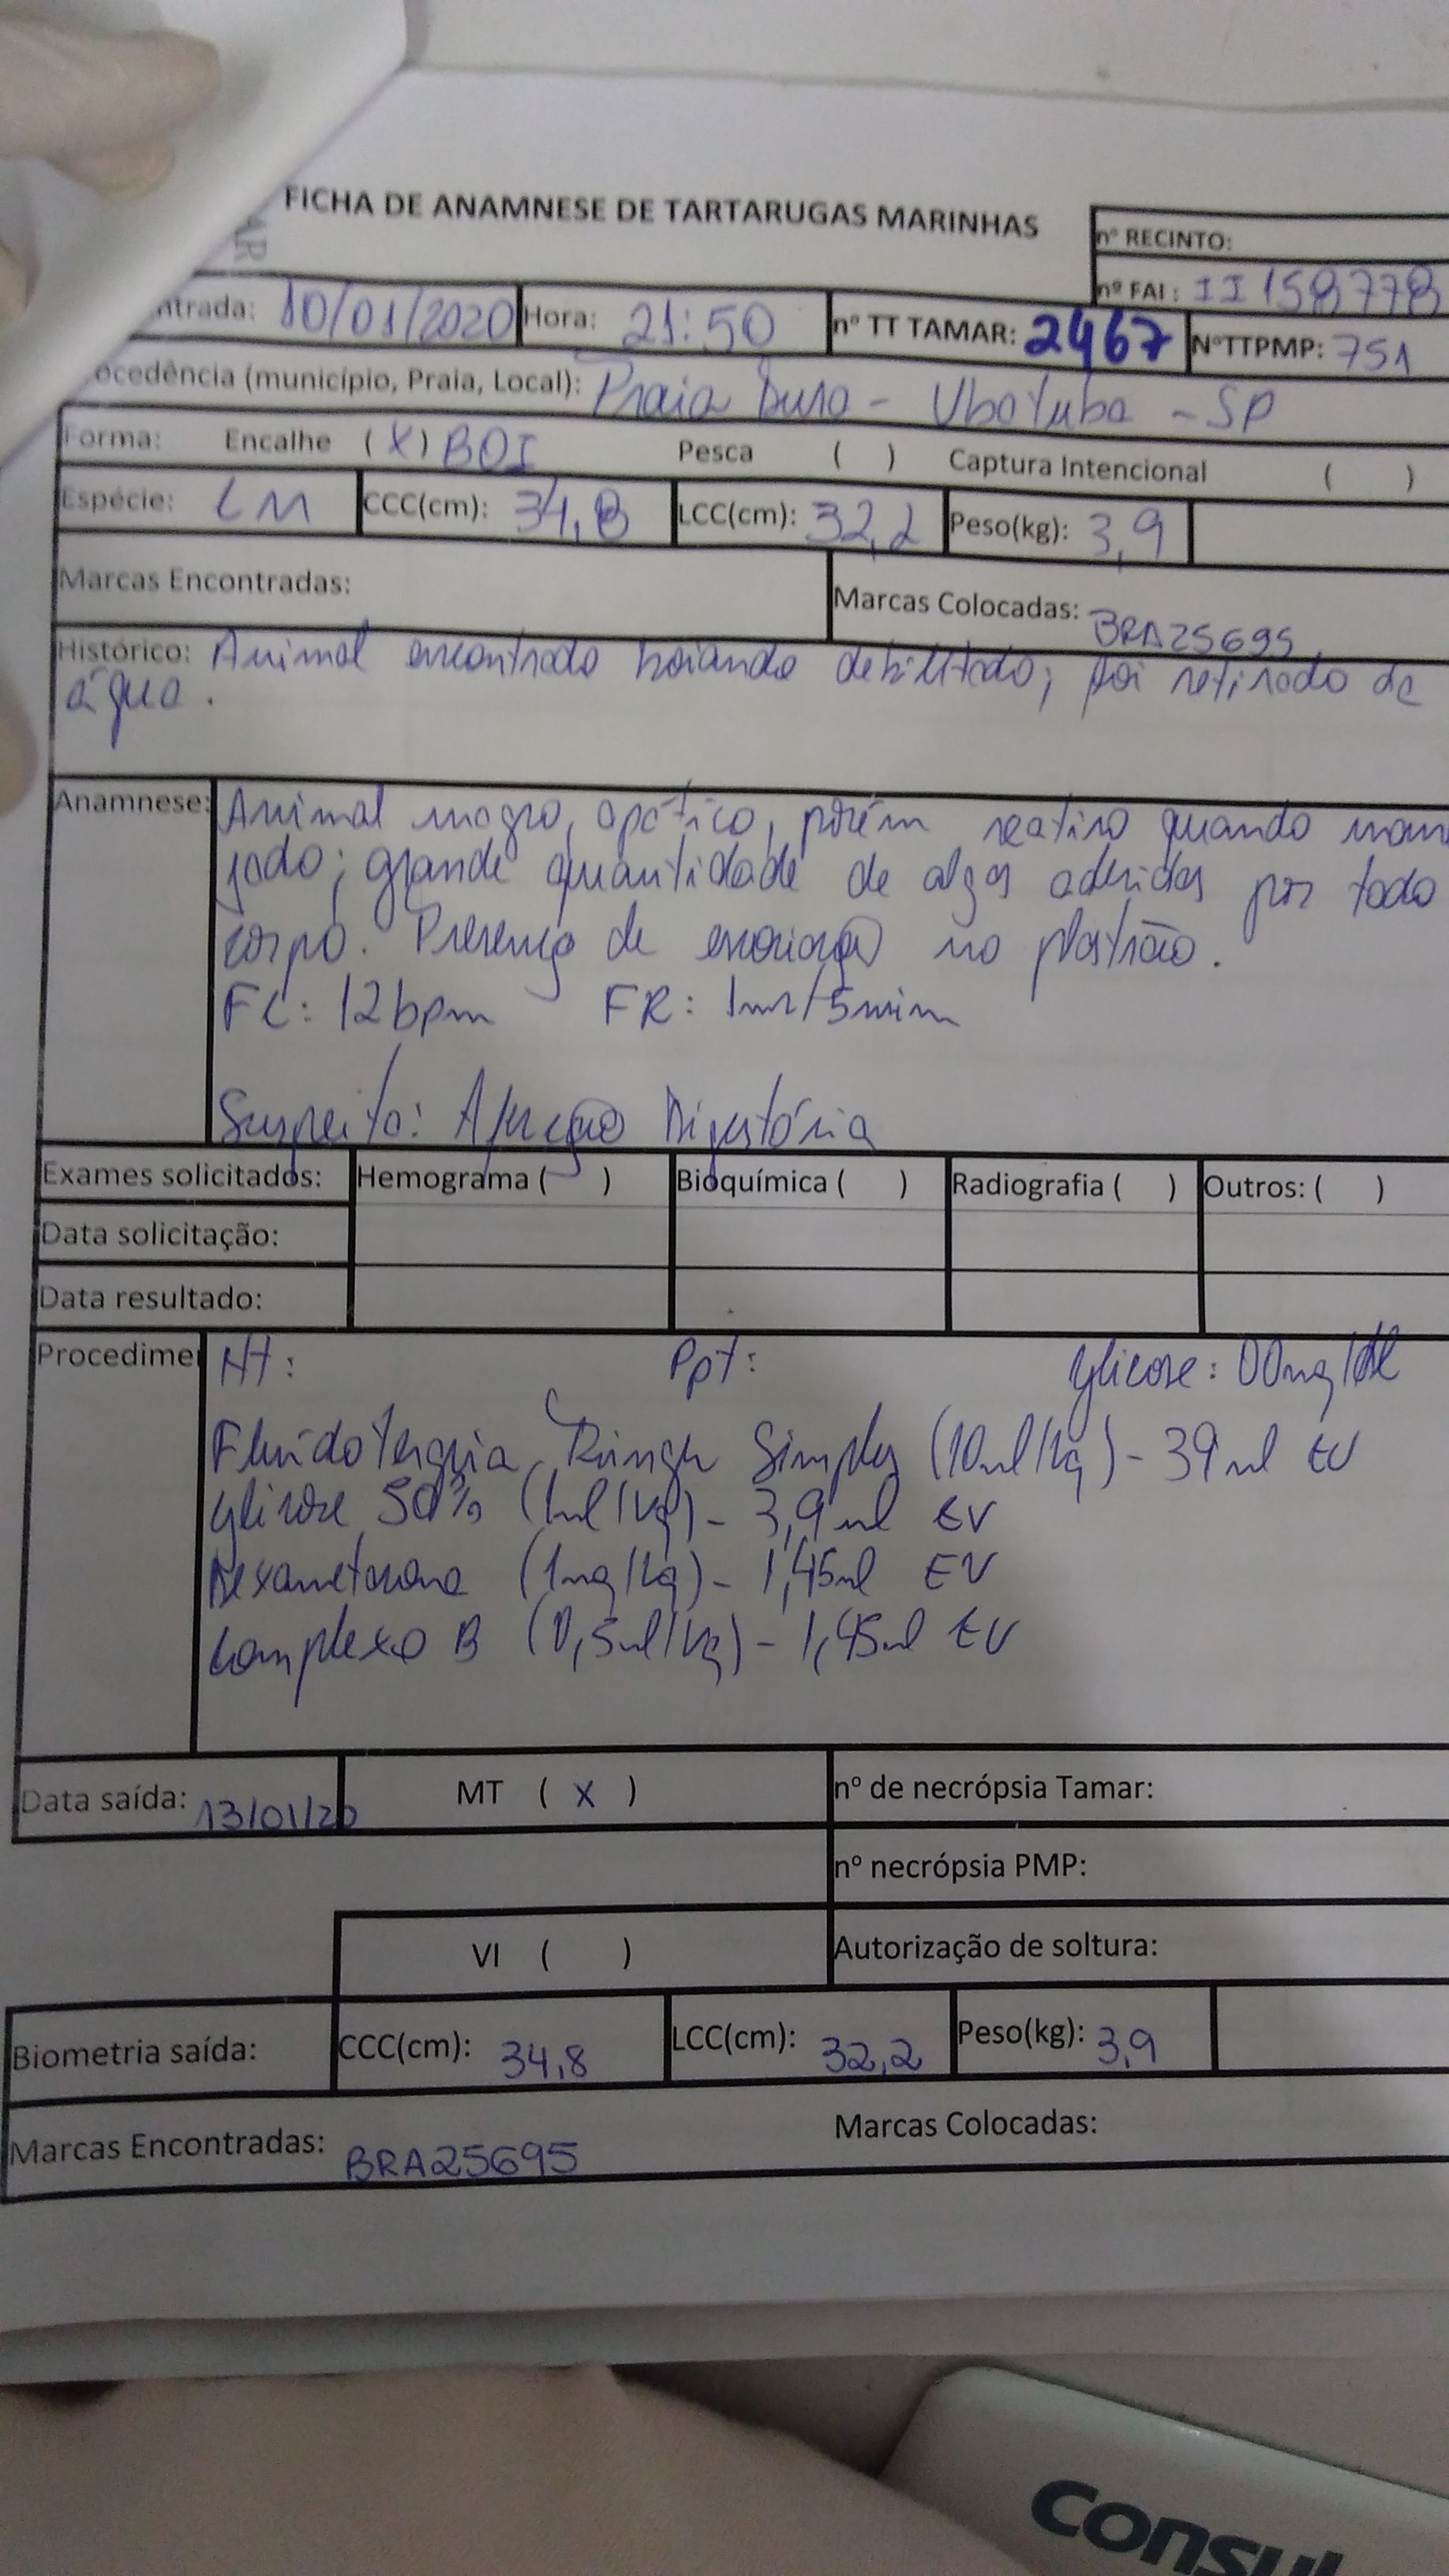 AR
FICHA DE ANAMNESE DE TARTARUGAS MARINHAS
nº RECINTO:
nº FAI: II158778
ntrada: 10/01/2020 Hora: 21:50 nº TT TAMAR: 2467 NºTTPMP: 751
ocedência (município, Praia, Local): Praia Dura - Ubatuba - SP
Forma: Encalhe (X) BOI Pesca ( ) Captura Intencional ( )
Espécie: CM CCC(cm): 34,8 LCC(cm): 32,2 Peso(kg): 3,9
Marcas Encontradas: Marcas Colocadas: BRA25695
Histórico: Animal encontrado boiando debilitado; foi retirado da
água.
Anamnese: Animal magro, apático, porém reativo quando mane
jado; grande quantidade de algas aderidas por todo
corpo. Presença de escoriação no plastrão.
FC: 12bpm FR: 1mr/5min
Suspeita: Afecção Digestória
Exames solicitados: Hemograma ( ) Bioquímica ( ) Radiografia ( ) Outros: ( )
Data solicitação:
Data resultado:
Procedime Ht: Ppt: glicose: 00mg/dl
Fluidoterapia Ringer Simples (10ml/kg) - 39ml EV
glicose 50% (1ml/kg) - 3,9ml EV
Dexametasona (1mg/kg) - 1,45ml EV
Complexo B (0,5ml/kg) - 1,45ml EV
Data saída: 13/01/20 MT ( X ) nº de necrópsia Tamar:
nº necrópsia PMP:
VI ( ) Autorização de soltura:
Biometria saída: CCC(cm): 34,8 LCC(cm): 32,2 Peso(kg): 3,9
Marcas Encontradas: BRA25695 Marcas Colocadas:
Consul